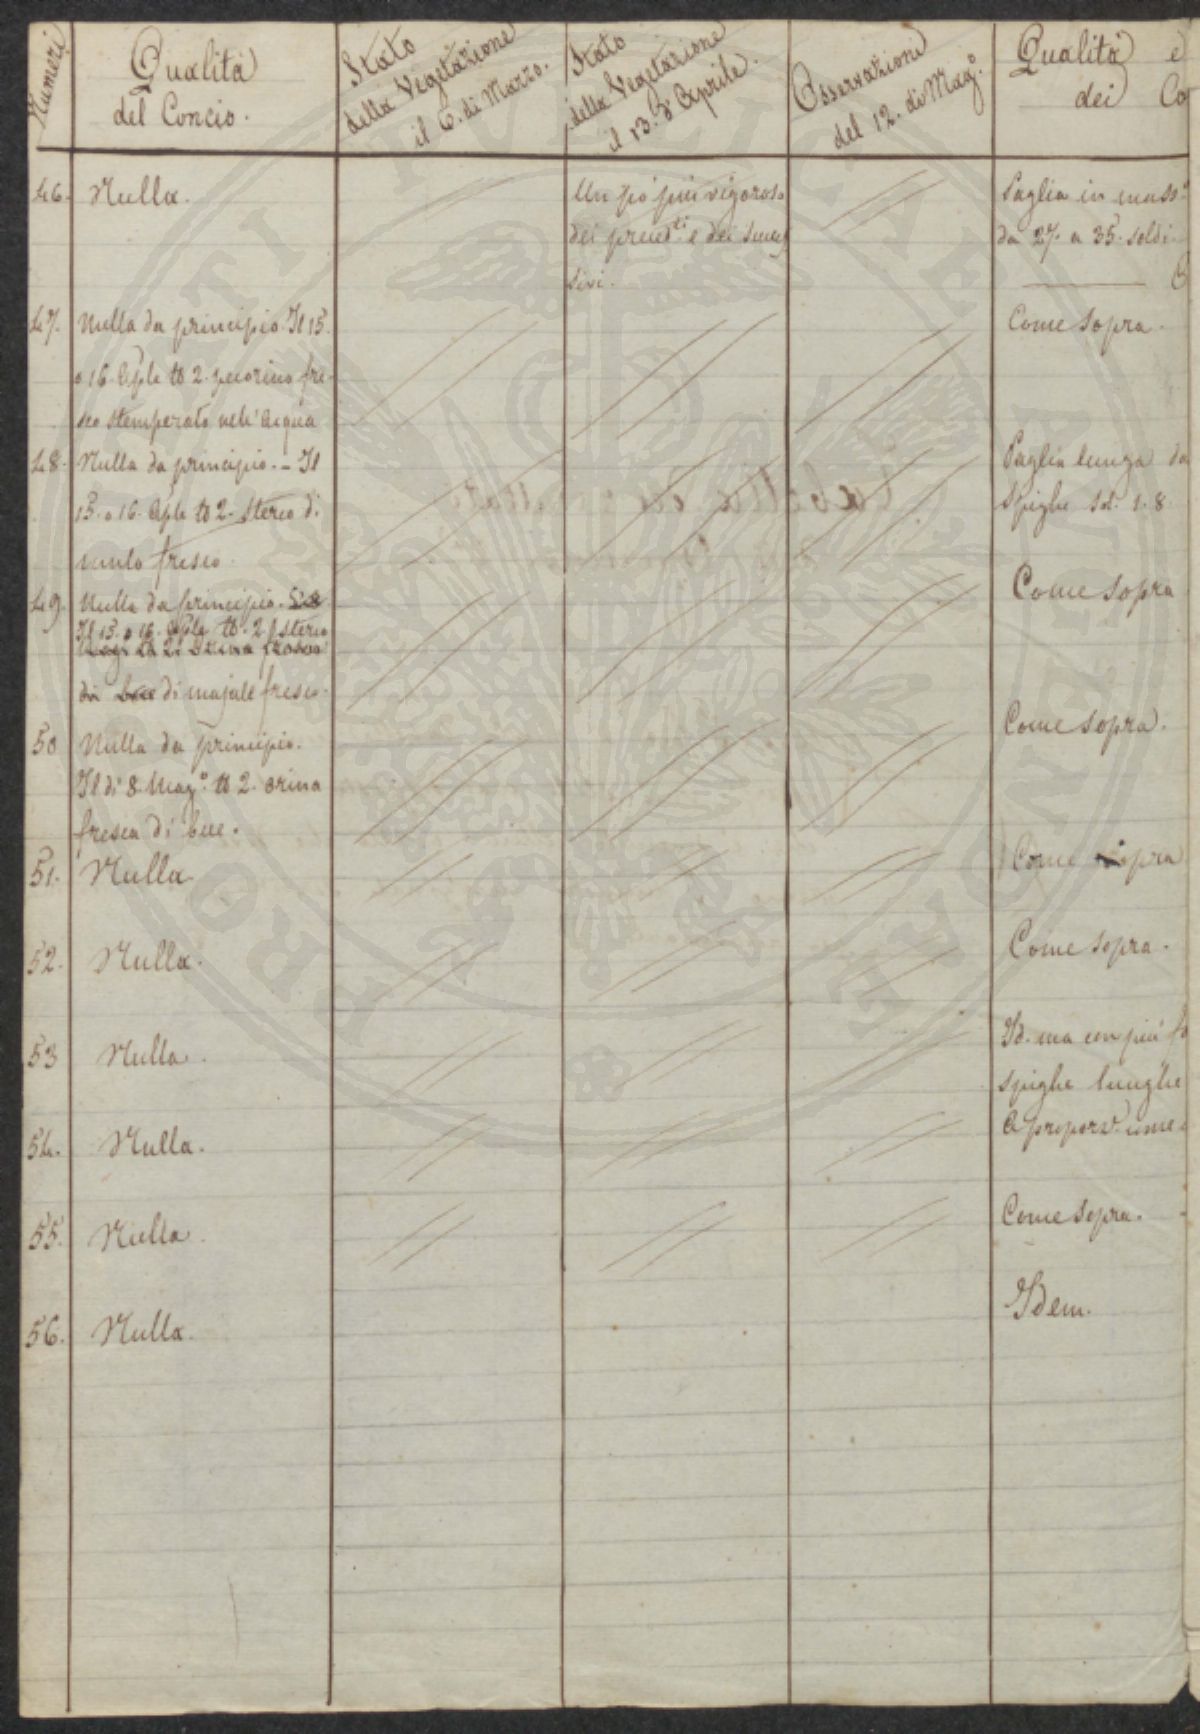 Numeri
Qualità
del Concio.
Stato
della Vegetazione
il 6. di Marzo.
Stato
della Vegetazione
il 13. d'Aprile.
Osservazione
del 12. di Mag.o
Qualità e
dei Co
46. Nulla.
Un pò più vigoroso
dei preced.ti e dei succes
sivi.
Paglia in mass.a
da 27. a 35. soldi.
47. Nulla da principio. Il 15.
o 16. Aple lb 2. pecorino fre-
sco stemperato nell'acqua
Come sopra.
48. Nulla da principio. - Il
15. o 16. Aple lb 2. sterco di
fresco.
Paglia lunga da
Spighe sol. 1. 8.
49. Nulla da principio.
Il 15. o 16. Aple lb. 2. sterco
di bue di majale fresco.
Come sopra
50 Nulla da principio.
Il di 8. Mag.o lb 2. orina
fresca di bue.
Come sopra.
51. Nulla.
Come sopra
52. Nulla.
Come sopra.
53 Nulla.
Id. ma con più
spighe lunghe
54. Nulla.
A proporz.
55. Nulla.
Come sopra.
56. Nulla.
Idem.